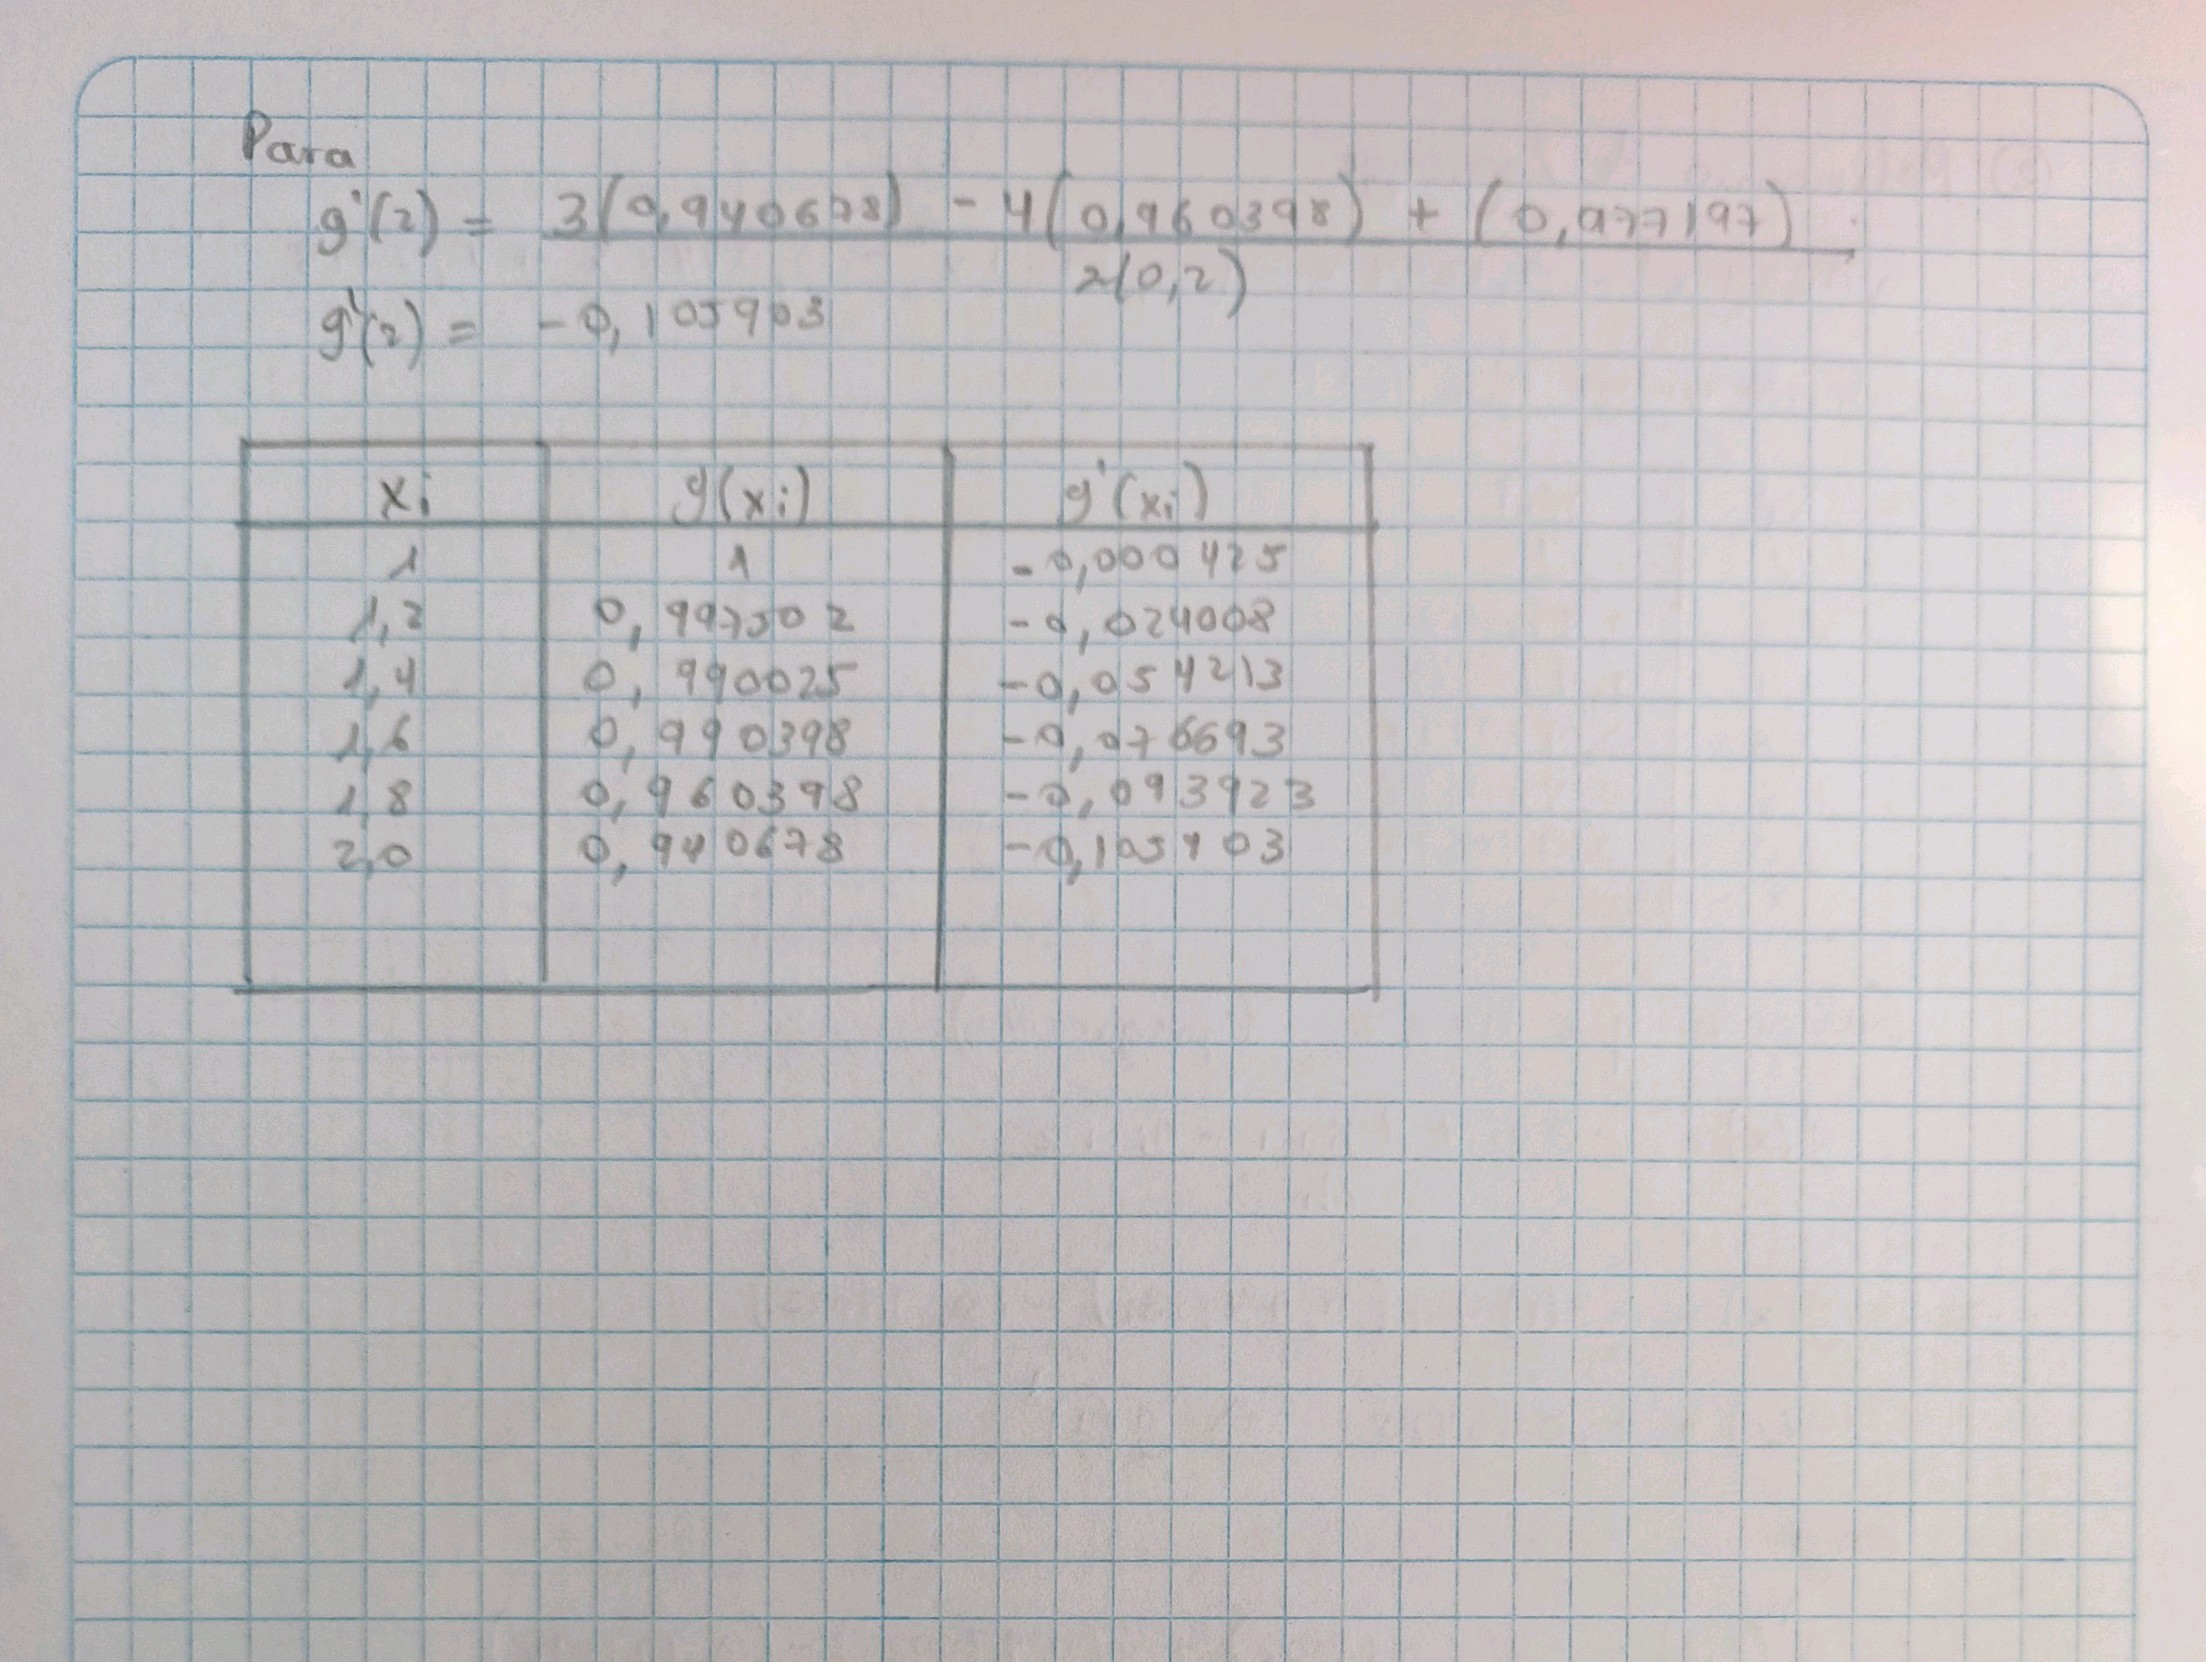 Para
g'(2) = 3(0,940678) - 4(0,960398) + (0,977197)
2(0,2)
g'(2) = -0,105903
xi g(xi) g'(xi)
1 1 -0,000425
1,2 0,997502 -0,024008
1,4 0,990025 -0,054213
1,6 0,990398 -0,076693
1,8 0,960398 -0,093923
2,0 0,940678 -0,105903